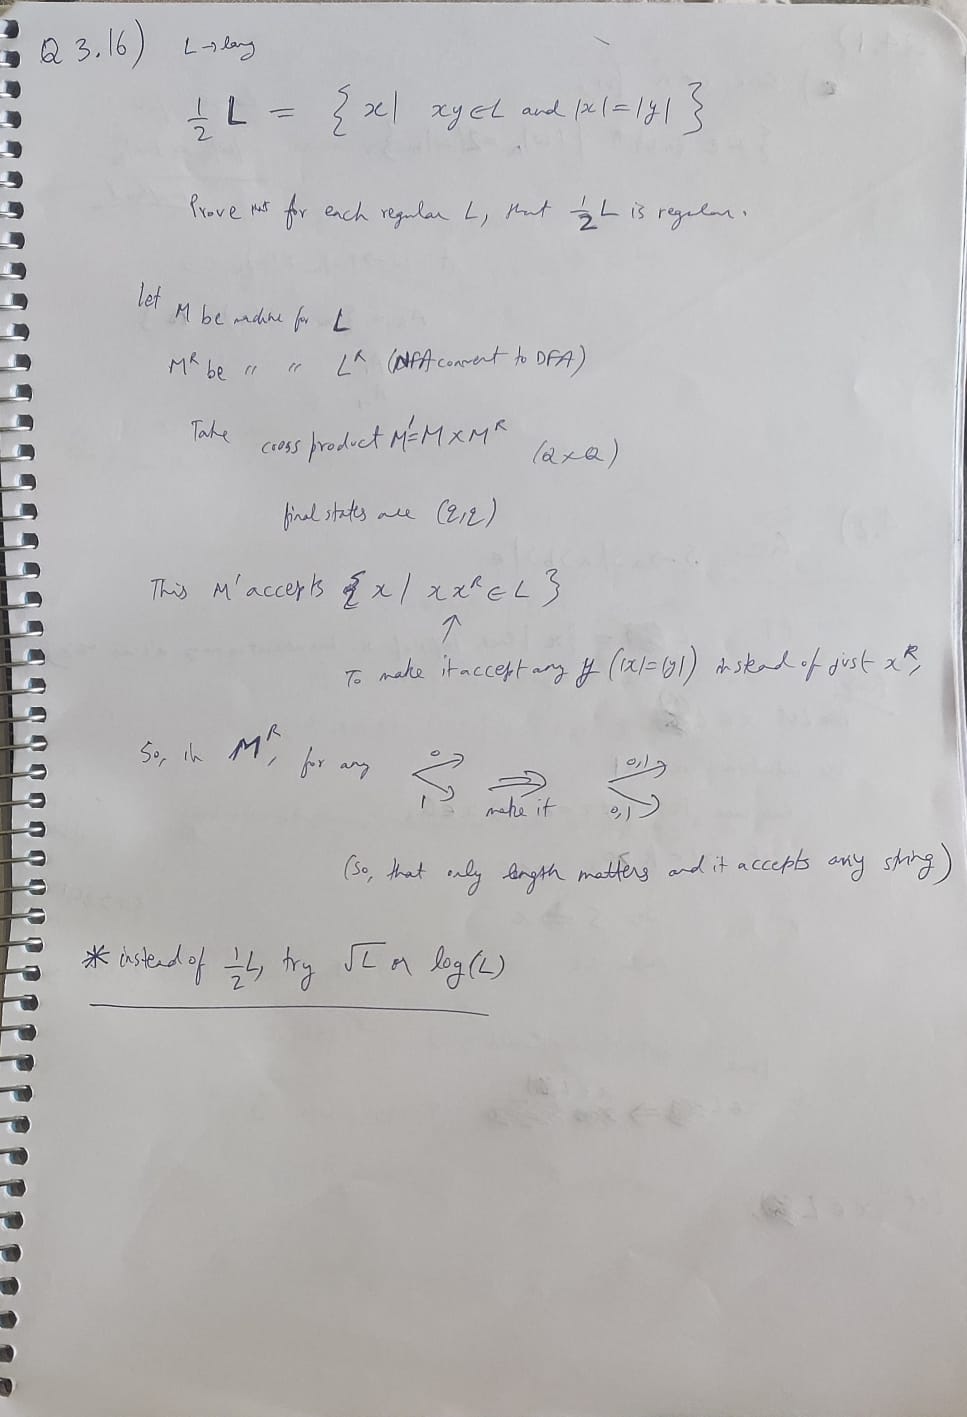 Q 3.16) L → lang
½ L = { x | xy ∈ L and |x| = |y| }
Prove that for each regular L, that ½ L is regular.
let M be machine for L
Mᴿ be " " Lᴿ (NFA convert to DFA)
Take cross product M' = M × Mᴿ (Q×Q)
final states are (q,q)
This M' accepts { x | x xᴿ ∈ L }
↑
To make it accept any y (|x|=|y|) instead of just xᴿ,
So, in Mᴿ, for any 0 1 ⇒ make it 0,1 0,1
(so, that only length matters and it accepts any string)
* instead of ½L, try √L or log(L)